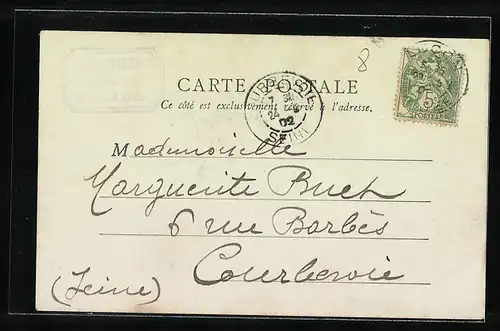 8
CARTE POSTALE
Ce côté est exclusivement réservé à l'adresse.
COURBEVOIE
7
24
02
SEINE
5
POSTES
Mademoiselle
Marguerite Buch
6 rue Barbès
Courbevoie
(Seine)